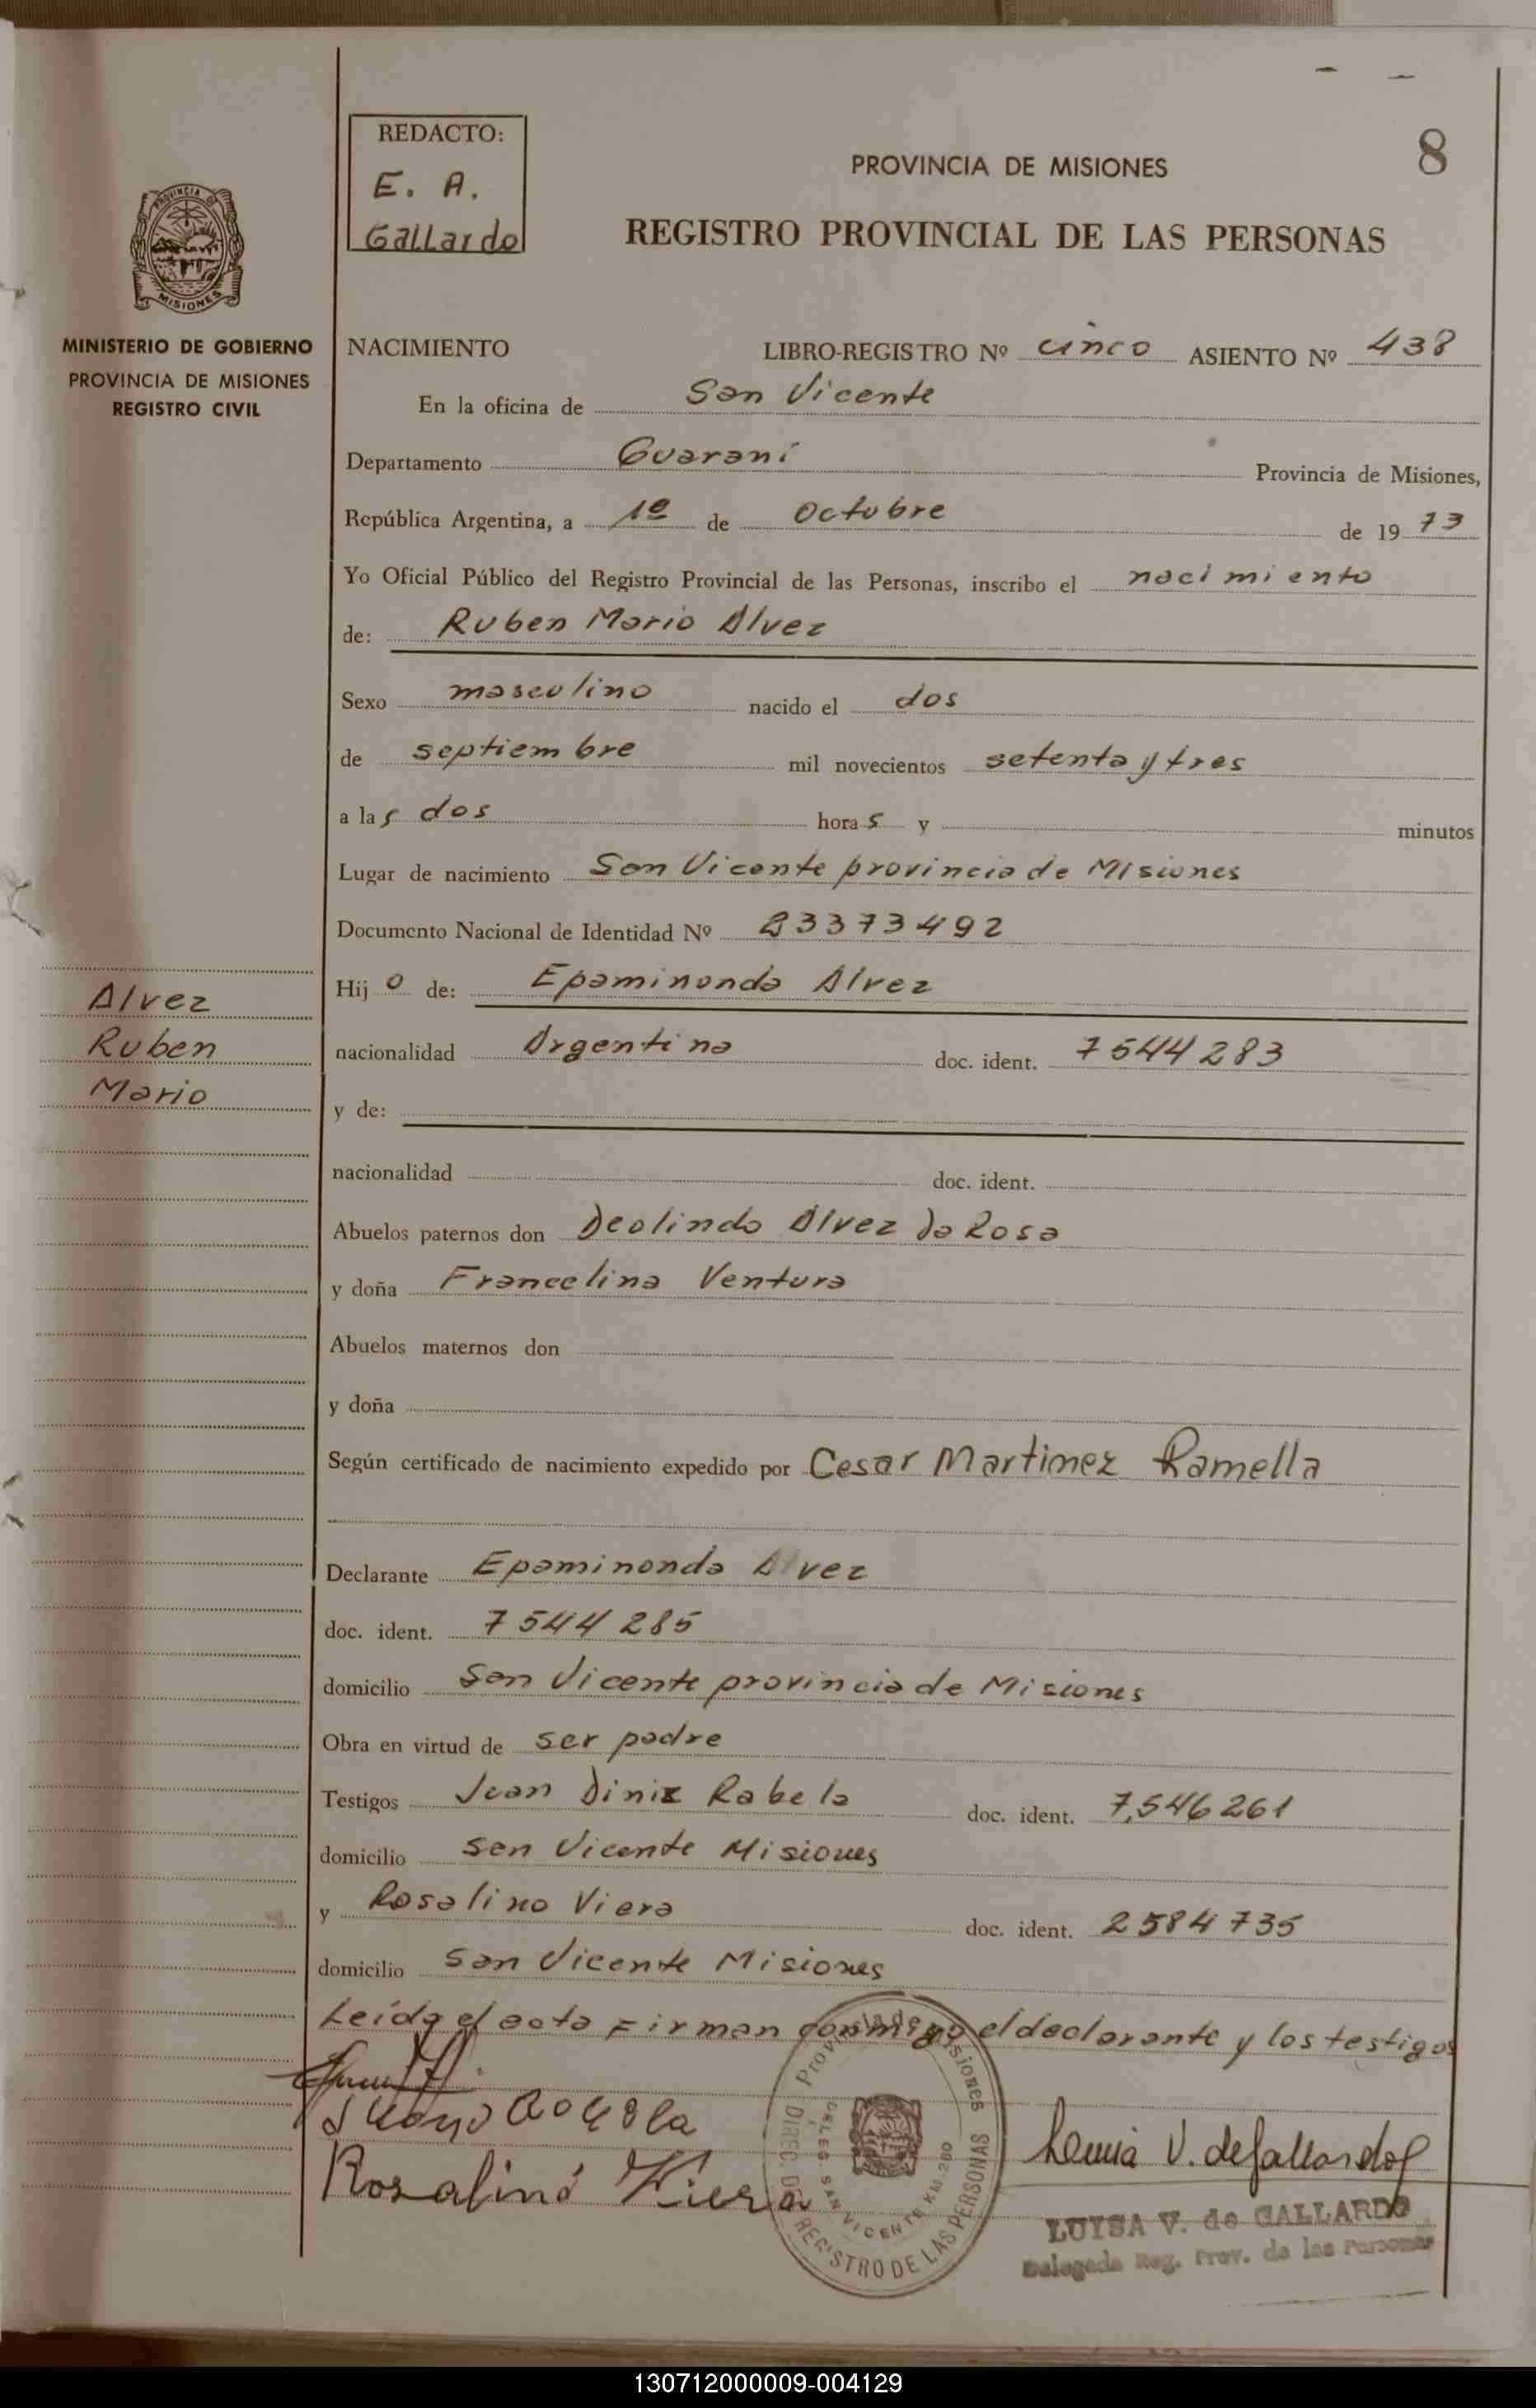 8
REDACTO:
E. A.
Gallardo
PROVINCIA DE MISIONES
REGISTRO PROVINCIAL DE LAS PERSONAS
PROVINCIA DE
MISIONES
MINISTERIO DE GOBIERNO
PROVINCIA DE MISIONES
REGISTRO CIVIL
NACIMIENTO LIBRO-REGISTRO Nº cinco ASIENTO Nº 438
En la oficina de San Vicente
Departamento Guaraní Provincia de Misiones,
República Argentina, a 1º de Octubre de 19 73
Yo Oficial Público del Registro Provincial de las Personas, inscribo el nacimiento
de: Ruben Mario Alvez
Sexo masculino nacido el dos
de septiembre mil novecientos setenta y tres
a las dos horas y minutos
Lugar de nacimiento San Vicente provincia de Misiones
Documento Nacional de Identidad Nº 23373492
Hijo de: Epaminonda Alvez
nacionalidad Argentina doc. ident. 7544283
y de:
nacionalidad doc. ident.
Abuelos paternos don Deolindo Alvez da Rosa
y doña Francelina Ventura
Abuelos maternos don
y doña
Según certificado de nacimiento expedido por Cesar Martinez Ramella
Declarante Epaminonda Alvez
doc. ident. 7544285
domicilio San Vicente provincia de Misiones
Obra en virtud de ser padre
Testigos Juan Diniz Rabela doc. ident. 7,546261
domicilio San Vicente Misiones
y Rosalino Viera doc. ident. 2584735
domicilio San Vicente Misiones
Leída el acta firman conmigo el declarante y los testigos
Alvez
Ruben
Mario
Rosalino Viera
Provincia de Misiones
DIREC. DEL REGISTRO DE LAS PERSONAS
SAN VICENTE KM. 200
V. de Gallardo
LUISA V. de GALLARDO
Delegada Reg. Prov. de las Personas
130712000009-004129